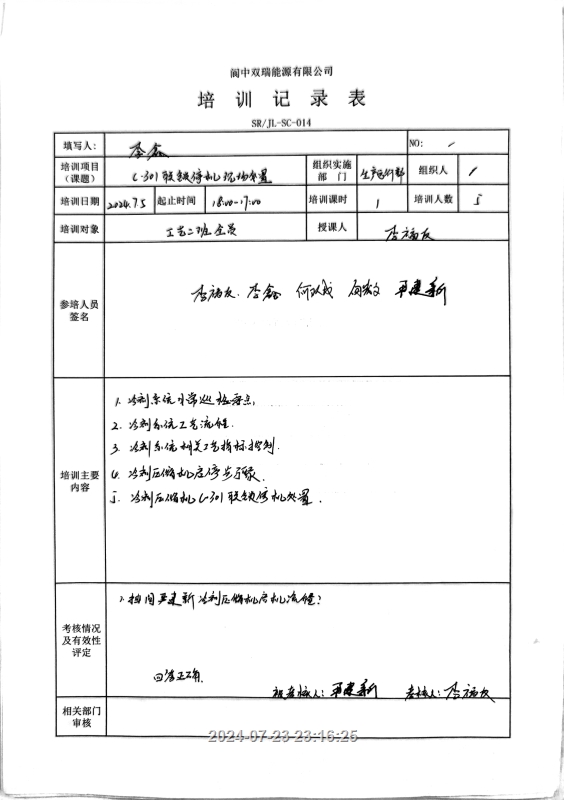 阆中双瑞能源有限公司
培训记录表
SR/JL-SC-014
填写人： 李鑫 NO: /
培训项目（课题） C-301联锁停机现场处置 组织实施部门 生产运行部 组织人 /
培训日期 2024.7.5 起止时间 16:00-17:00 培训课时 1 培训人数 5
培训对象 工艺二班全员 授课人 李福友
参培人员签名 李福友、李鑫 何以成 向宏文 平建新
培训主要内容
1. 冷剂系统日常巡检要点,
2. 冷剂系统工艺流程.
3. 冷剂系统相关工艺指标控制.
4. 冷剂压缩机启停步骤.
5. 冷剂压缩机C-301联锁停机处置.
考核情况及有效性评定
1. 提问平建新冷剂压缩机启机流程?
回答正确.
被考核人: 平建新 考核人: 李福友
相关部门审核
2024-07-23 23:16:25